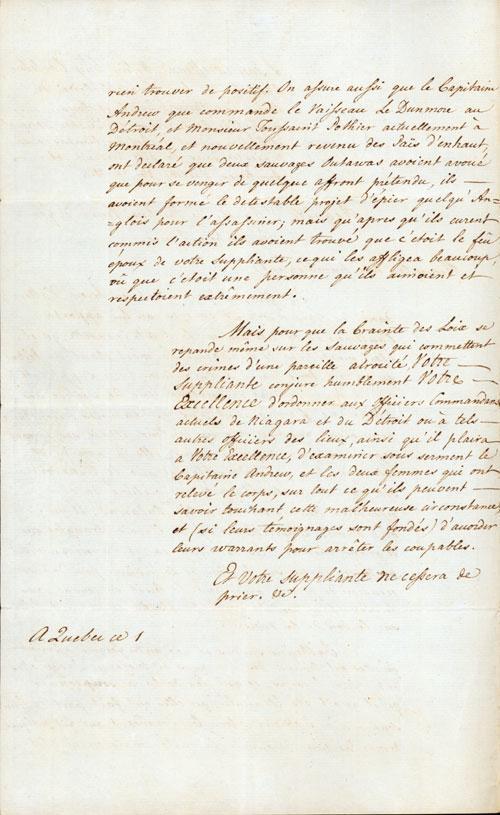 rien trouver de positif. On assure aussi que le Capitain
Andrew que commande le Vaisseau Le Dunmore au
Détroit, et Monsieur Toussaint Pothier actuellement à
Montréal, et nouvellement revenu des Païs d'enhaut,
ont declaré que deux sauvages Outawas avoient avoué
que pour se venger de quelque affront prétendu, ils —
avoient formé le detestable projet d'épier quelqu'An-
=glois pour l'assassiner; mais qu'apres qu'ils eurent
commis l'action ils avoient trouvé que c'étoit le feu
époux de votre Suppliante, ce qui les affligea beaucoup,
vû que c'étoit une personne qu'ils aimoient et
respectoient extrêmement.
Mais pour que la Crainte des Loix se
repande même sur les sauvages qui commettent
des crimes d'une pareille atrocité, Votre —
Suppliante conjure humblement Votre —
Excellence d'ordonner aux Officiers Commandans
actuels de Niagara et du Détroit ou à tels —
autres officiers des lieux, ainsi qu'il plaira
a Votre Excellence, d'examiner sous serment le
Capitaine Andrew, et les deux femmes qui ont
relevé le corps, sur tout ce qu'ils peuvent —
savoir touchant cette malheureuse circonstance,
et (si leurs témoignages sont fondés) d'acorder
leurs warrants pour arrêter les coupables.
Et Votre Suppliante ne cessera de
prier. &c.
A Quebec ce 1